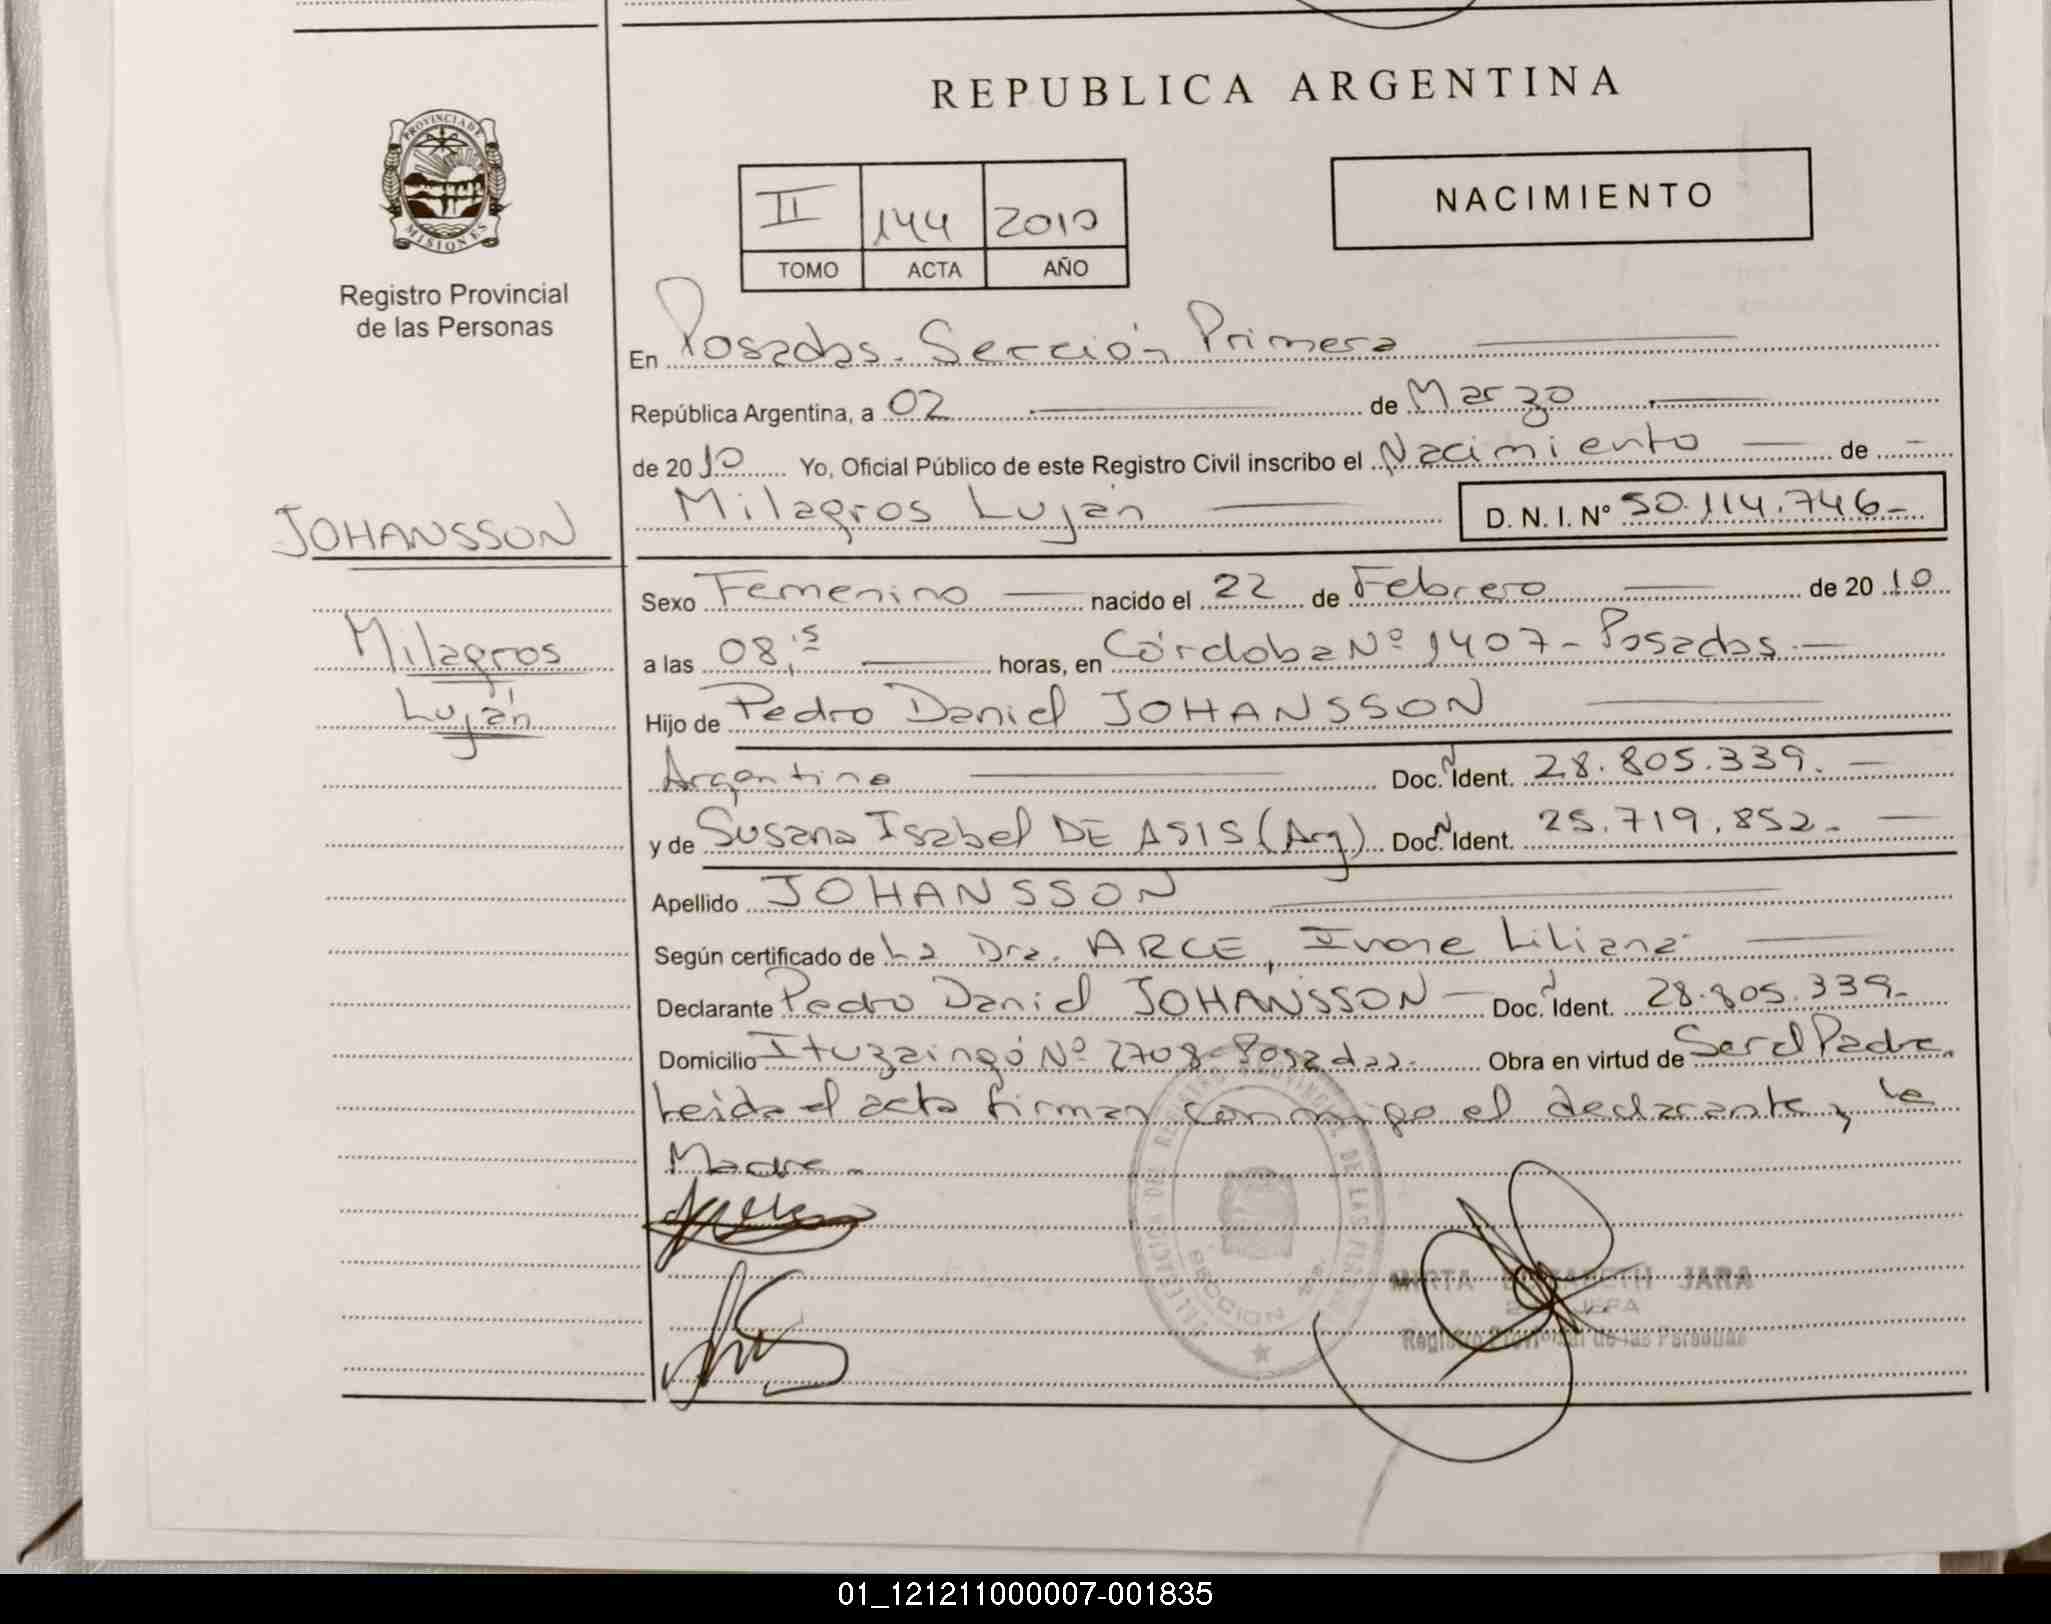 REPUBLICA ARGENTINA
PROVINCIA DE
MISIONES
Registro Provincial
de las Personas
II 144 2010
TOMO ACTA AÑO
NACIMIENTO
En Posadas. Sección Primera
República Argentina, a 02 de Marzo
de 2010 Yo, Oficial Público de este Registro Civil inscribo el Nacimiento de
Milagros Luján D. N. I. Nº 50.114.746-
JOHANSSON
Milagros
Luján
Sexo Femenino nacido el 22 de Febrero de 2010
a las 08,15 horas, en Córdoba Nº 1407 - Posadas.
Hijo de Pedro Daniel JOHANSSON
Argentino Doc. Ident. 28.805.339.
y de Susana Isabel DE ASIS (Arg) Doc. Ident. 25.719.852-
Apellido JOHANSSON
Según certificado de La Dra. ARCE, Ivone Liliana
Declarante Pedro Daniel JOHANSSON Doc. Ident. 28.805.339-
Domicilio Ituzaingó Nº 2708 - Posadas. Obra en virtud de Ser el Padre.
Leida el acta firman conmigo el declarante y la
Madre.
MIRTA ELIZABETH JARA
JEFA
Registro Provincial de las Personas
01_121211000007-001835